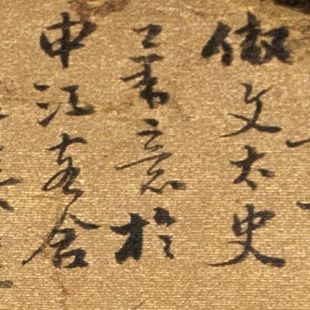 倣文太史
筆意於
申江客舍